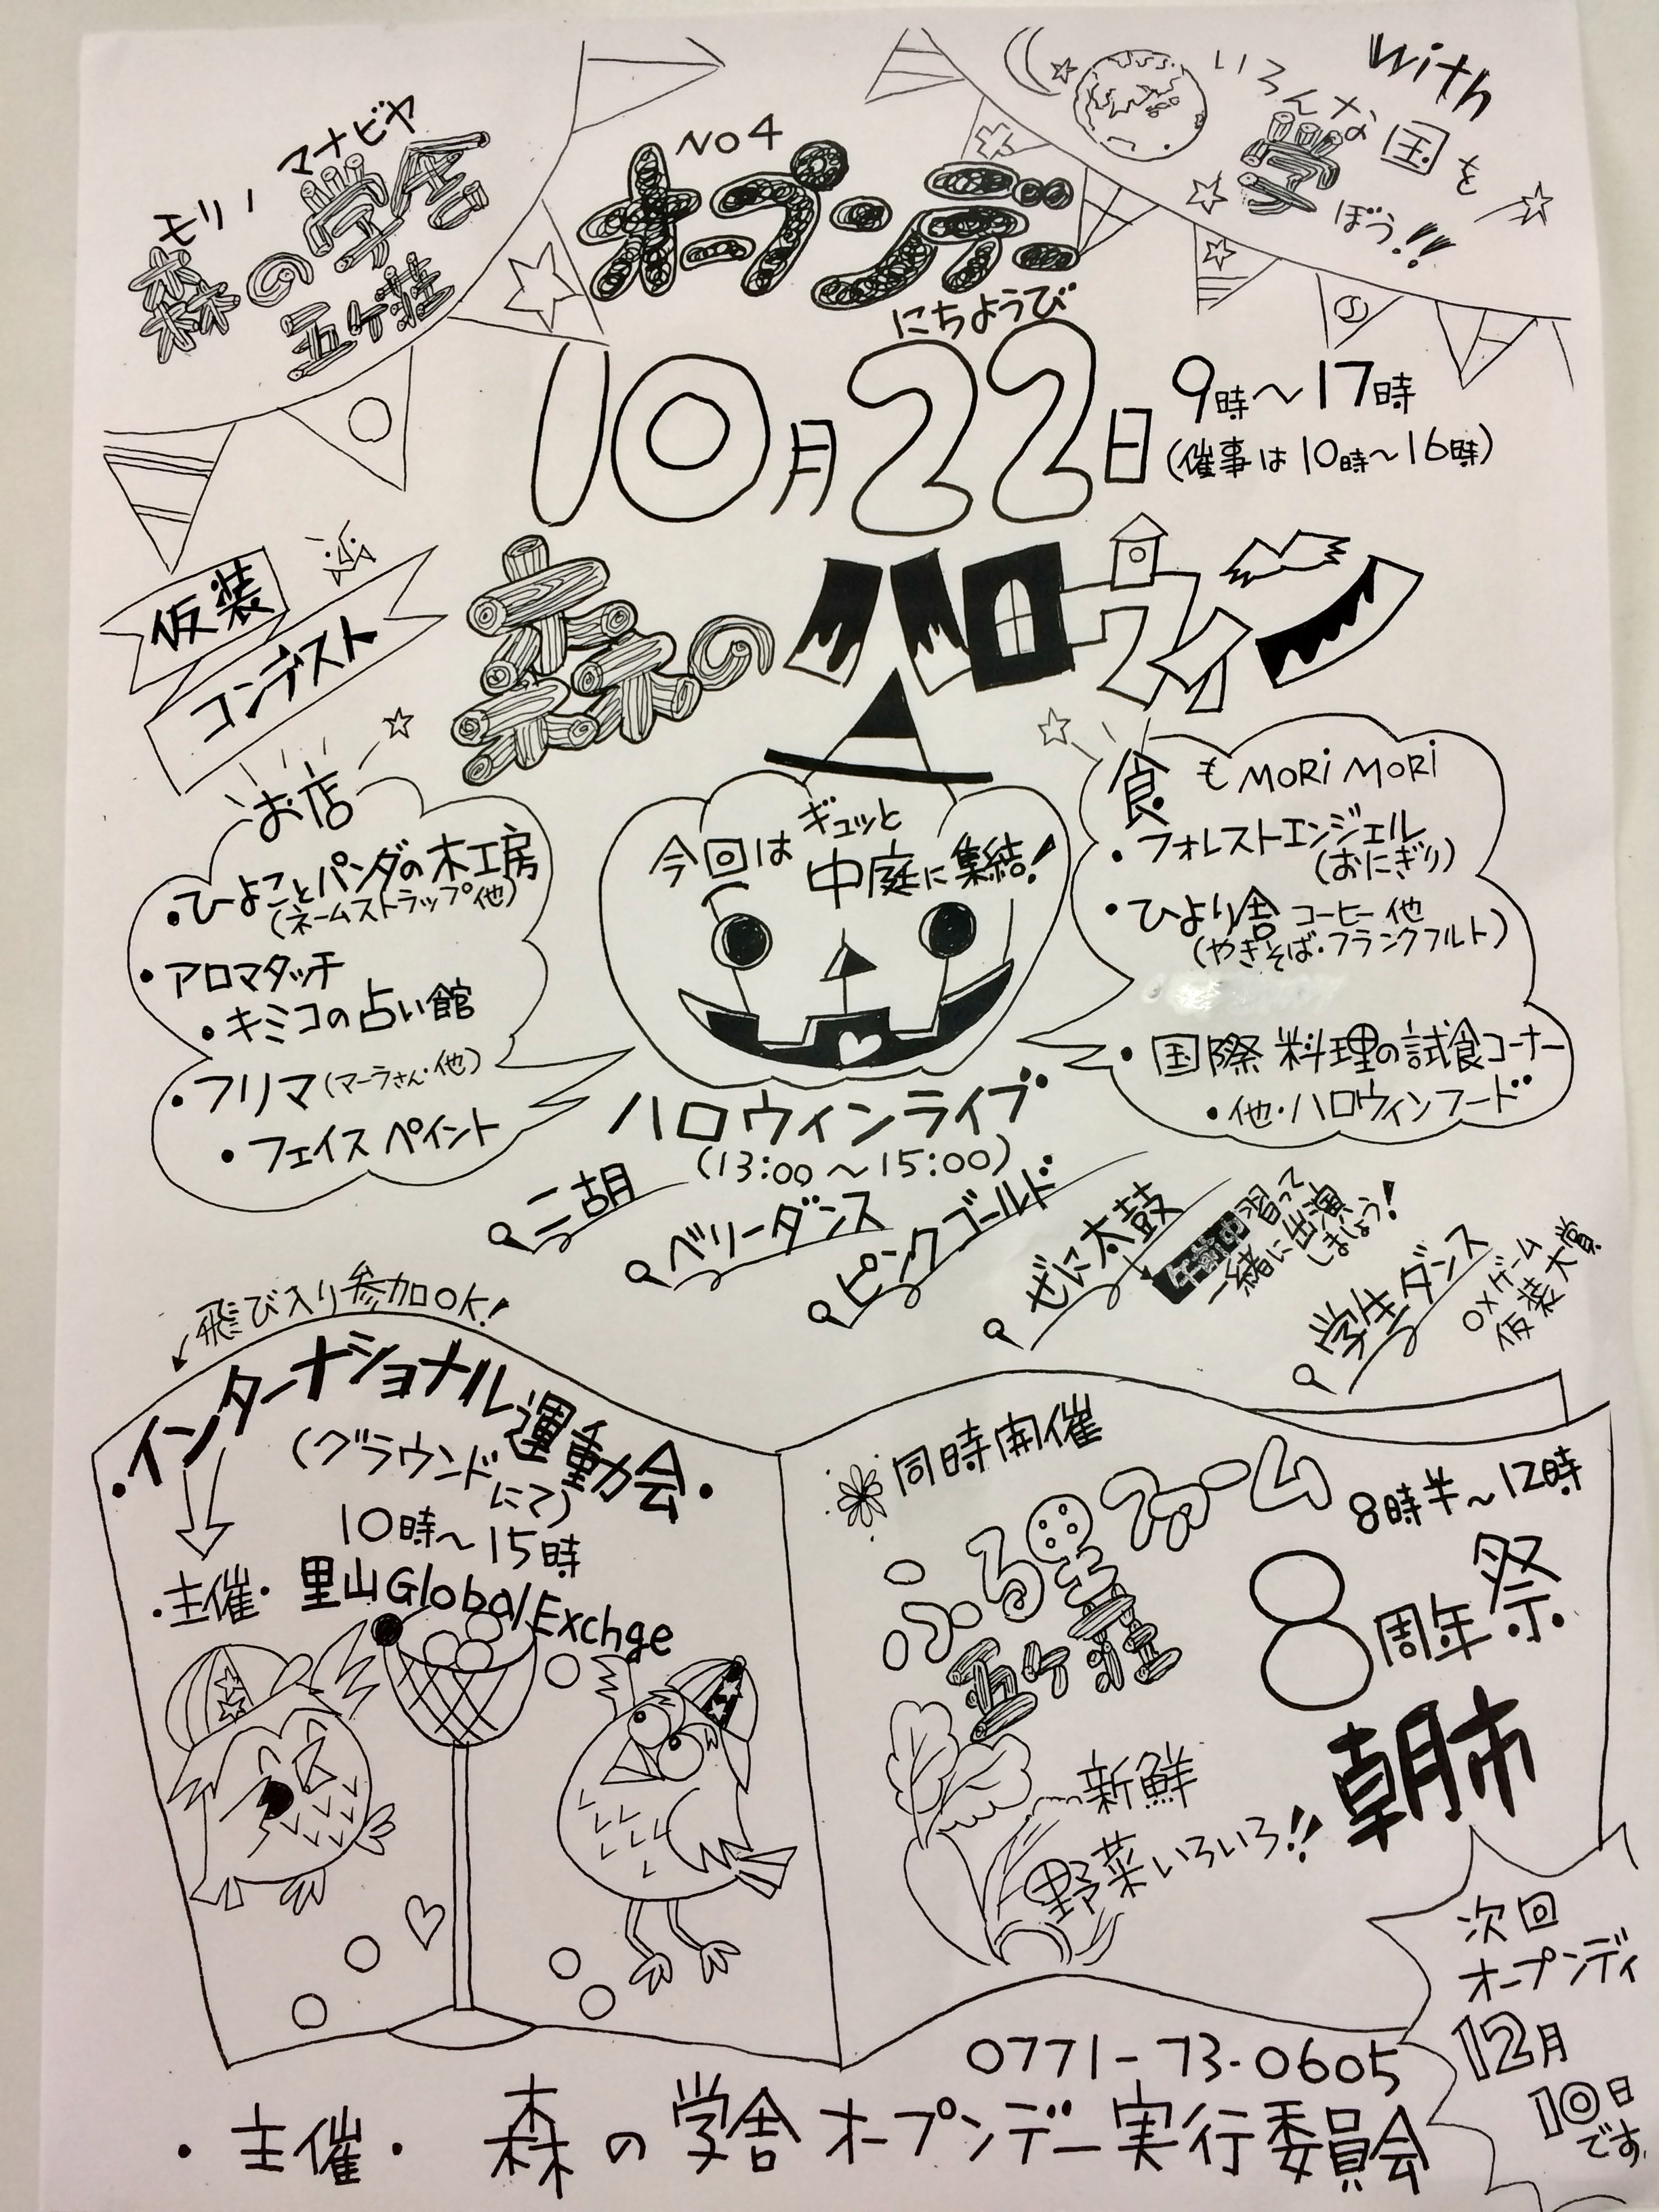 with
いろんな国を
学ぼう!!
モリノ マナビヤ
森の学舎
五ヶ荘
NO4
オープンデー
にちようび
10月22日
9時〜17時
(催事は10時〜16時)
仮装
コンテスト
森のハロウィン
お店
・ひよことパンダの木工房
(ネームストラップ他)
・アロマタッチ
・キミコの占い館
・フリマ(マーラさん・他)
・フェイスペイント
今回はギュッと
中庭に集結!
食もMORiMORi
・フォレストエンジェル
(おにぎり)
・ひより舎 コーヒー他
(やきそば・フランクフルト)
・国際料理の試食コーナー
・他・ハロウィンフード
ハロウィンライブ
(13:00〜15:00)
二胡
ベリーダンス
ピンクゴールド
ぜに太鼓
午前中習って
一緒に出演
しましょう!
学生ダンス
○×ゲーム
仮装大賞
飛び入り参加OK!
・インターナショナル運動会・
(グラウンドにて)
10時〜15時
・主催・里山Global Exchge
同時開催
ふる里ファーム
五ヶ荘
8時半〜12時
8周年祭
朝市
新鮮
野菜いろいろ!!
次回
オープンディ
12月
10日
です
0771-73-0605
・主催・森の学舎オープンデー実行委員会